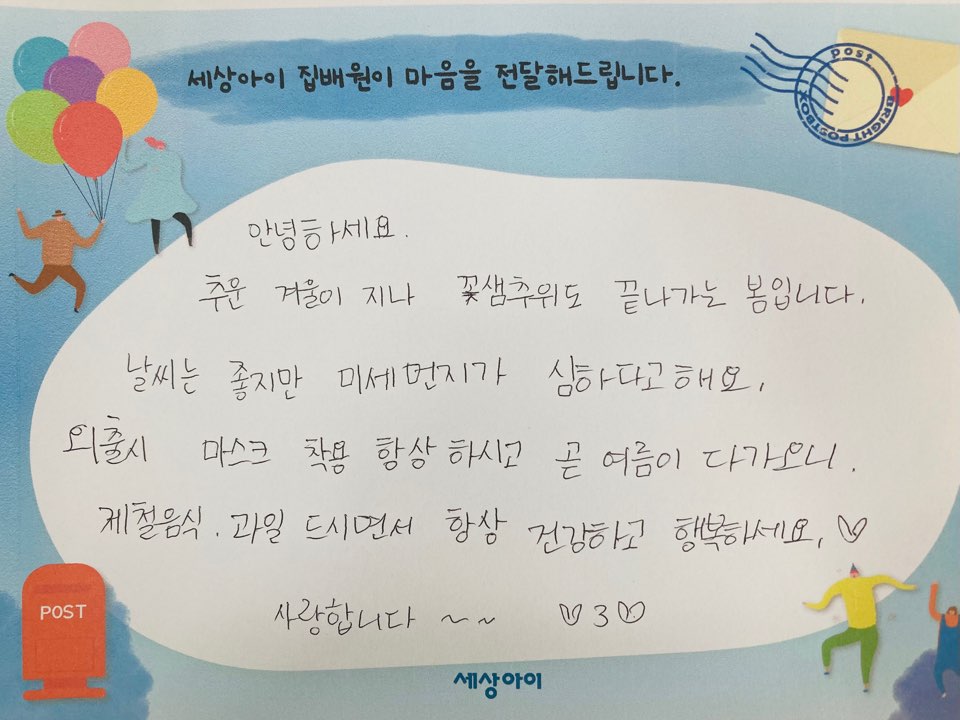 세상아이 집배원이 마음을 전달해드립니다.
post
BRIGHT POSTBOX
안녕하세요.
추운 겨울이 지나 꽃샘추위도 끝나가는 봄입니다.
날씨는 좋지만 미세먼지가 심하다고해요.
외출시 마스크 착용 항상하시고 곧 여름이 다가오니.
제철음식. 과일 드시면서 항상 건강하고 행복하세요. ♡
사랑합니다 ~~ ♡3♡
POST
세상아이